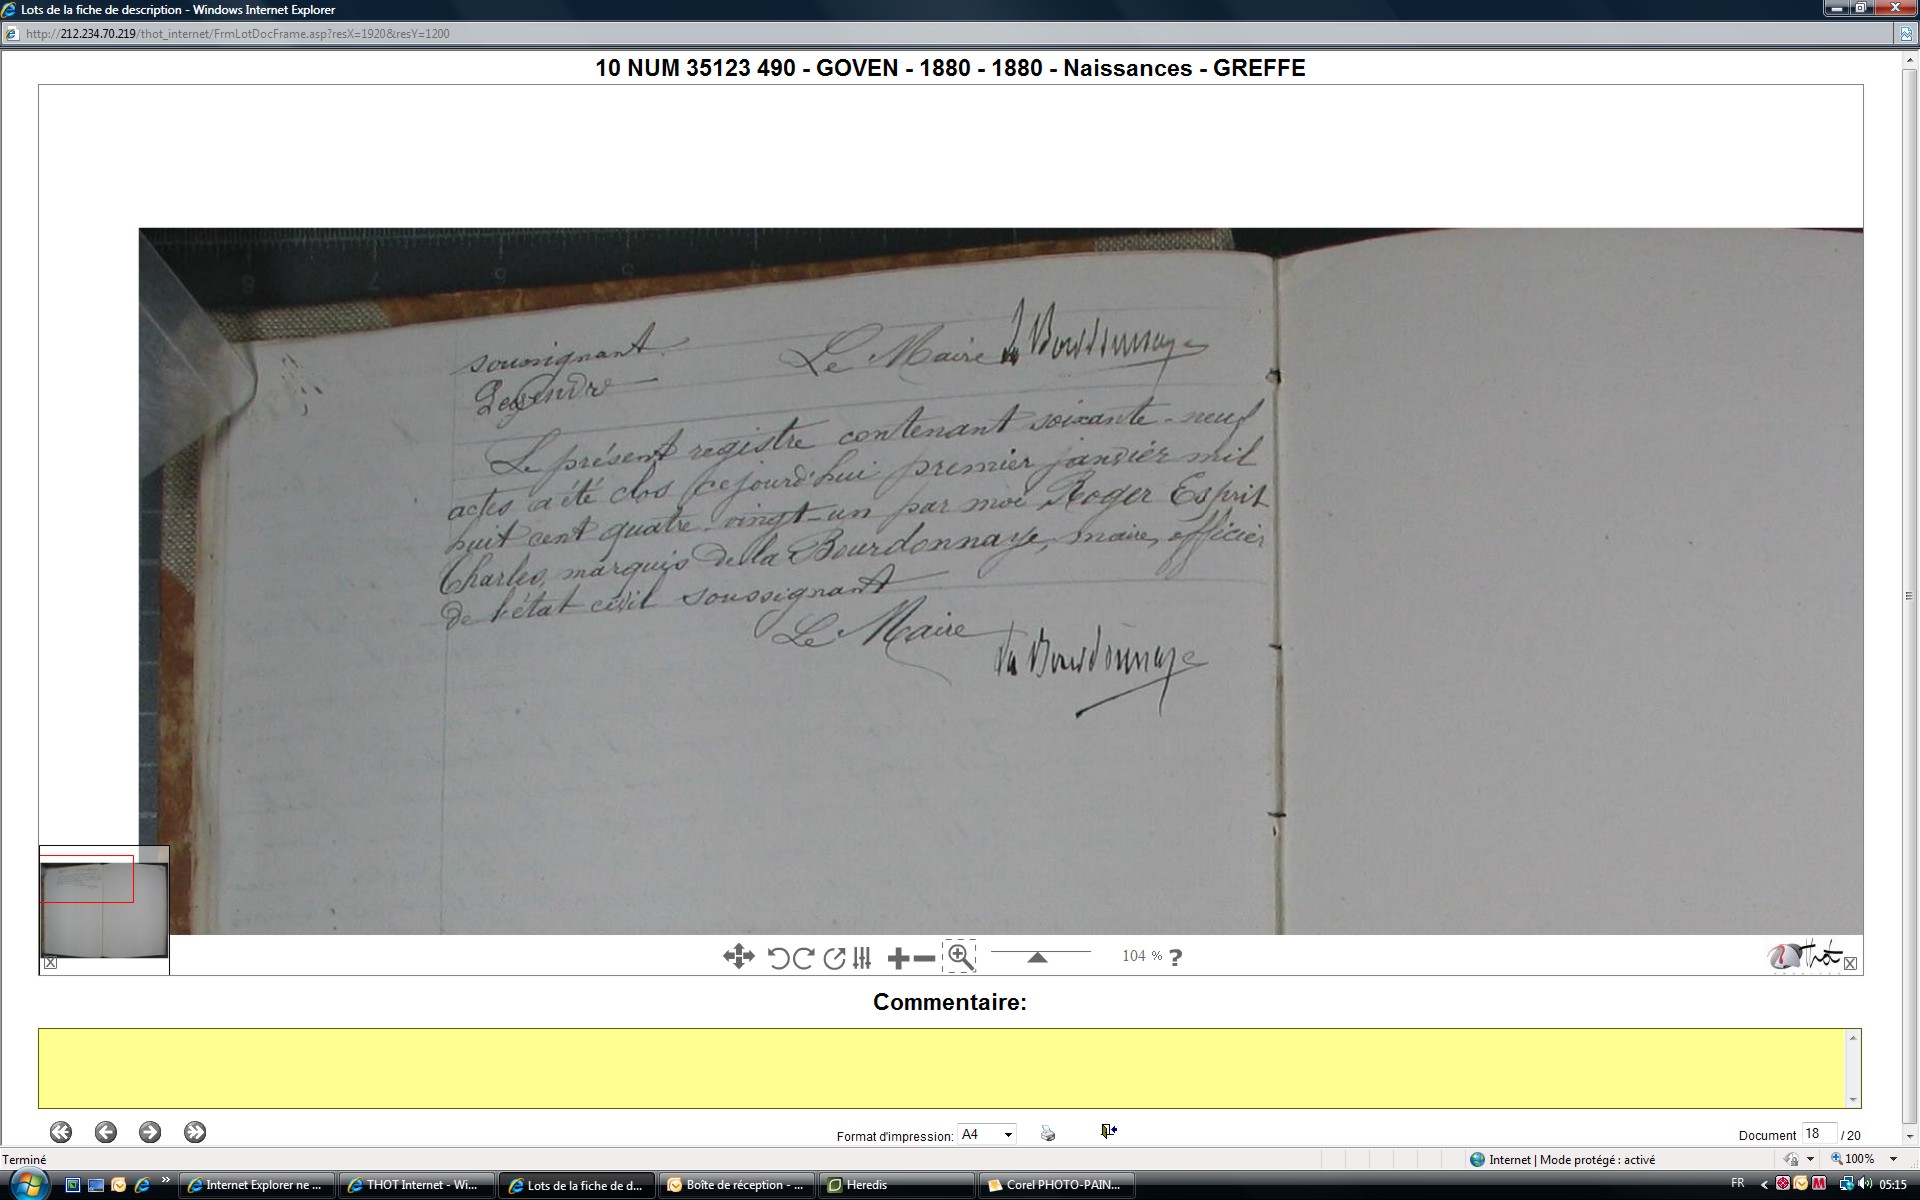 Lots de la fiche de description - Windows Internet Explorer
http://212.234.70.219/thot_internet/FrmLotDocFrame.asp?resX=1920&resY=1200
10 NUM 35123 490 - GOVEN - 1880 - 1880 - Naissances - GREFFE
soussignant. Le Maire La Bourdonnaye
Legendre
Le présent registre contenant soixante-neuf
actes a été clos cejourd'hui premier janvier mil
huit cent quatre-vingt-un par moi Roger Esprit
Charles, marquis de la Bourdonnaye, maire, officier
de l'état civil soussignant
Le Maire
La Bourdonnaye
104 % ?
Thot
Commentaire:
Format d'impression: A4
Document 18 / 20
Terminé
Internet | Mode protégé : activé
100%
Internet Explorer ne ...
THOT Internet - Wi...
Lots de la fiche de d...
Boîte de réception - ...
Heredis
Corel PHOTO-PAIN...
FR
05:15